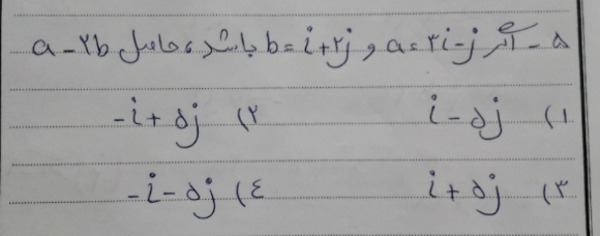 ۵ - اگر a = ۳i - j و b = i + ۲j باشد، حاصل a - ۲b
۱) i - ۵j ۲) -i + ۵j
۳) i + ۵j ٤) -i - ۵j